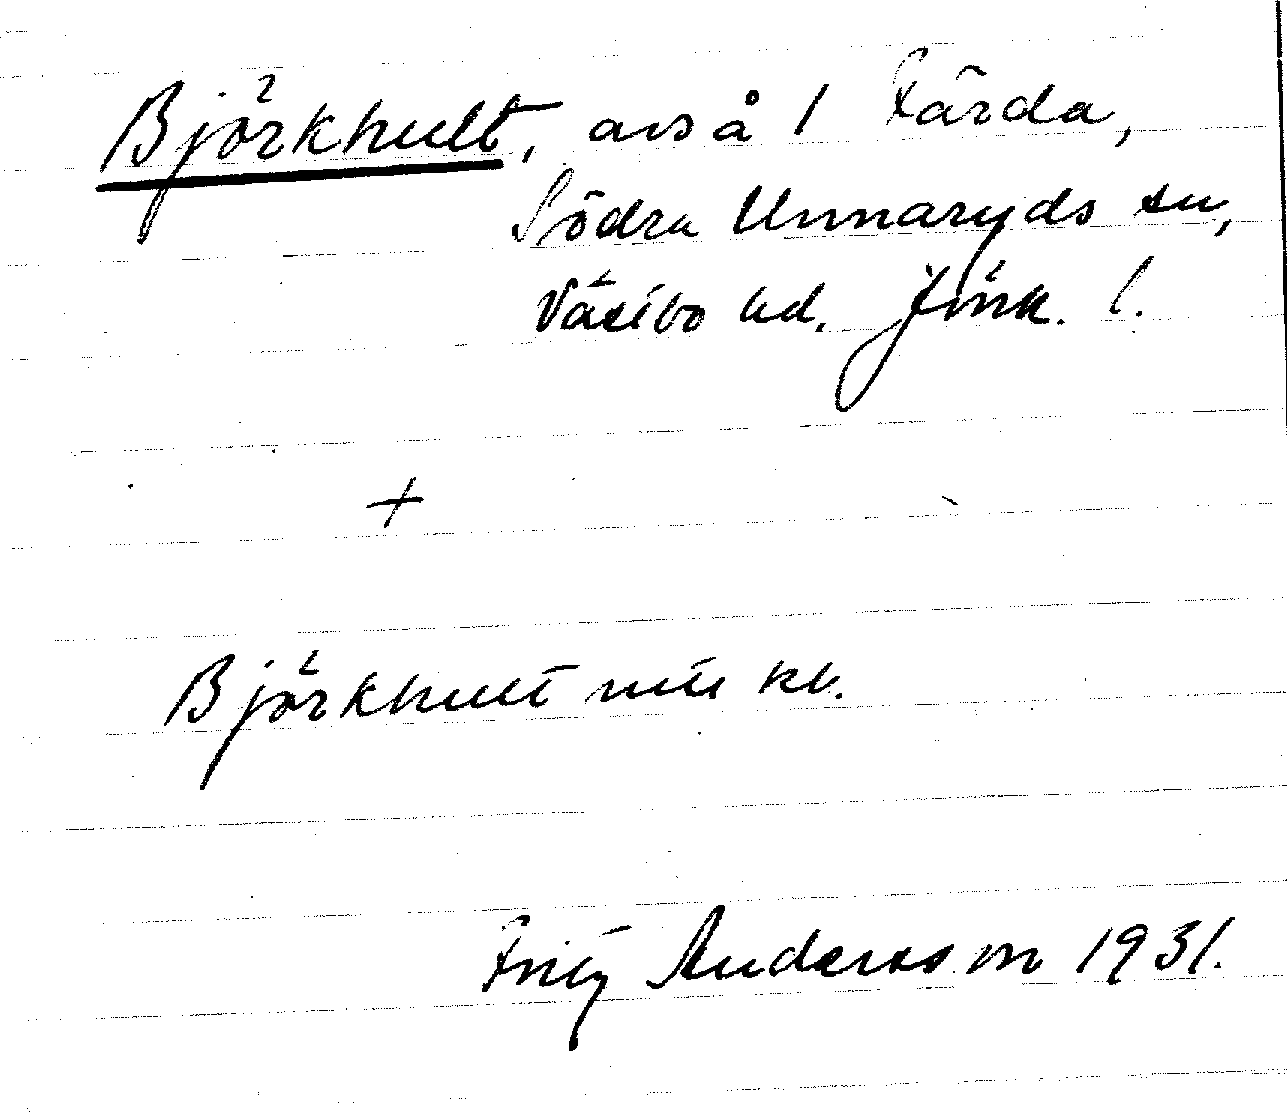 Björkhult, avs å 1 Färda,
Södra Unnaryds sn,
Västbo hd. Jönk. l.
+
Björkhult nitti kb.
Fritz Andersson 1931.